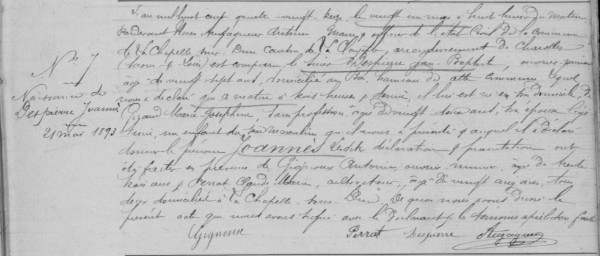 N° 7
Naissance de
Despierre Joannès
21 mai 1893
L'an mil huit cent quatre vingt treize le vingt un mai à huit heures du matin
par devant nous Augagneur Antoine Maire, officier de l'état Civil de la commune
de la Chapelle sous Dun Canton de la Clayette, arrondissement de Charolles
Saône & Loire est comparu le sieur Despierre Jean Baptiste, ouvrier mineur
âgé de vingt sept ans, domicilié au hameau de cette commune, lequel
nous a déclaré que ce matin à trois heures, il lui est né en son domicile de
Marie Joséphine, sans profession, âgée de vingt ans, son épouse légi
time, un enfant du sexe masculin qu'il nous a présenté & auquel il a déclaré
donner le prénom Joannès Lesdites déclaration & présentation ont
été faites en présence de Gigneux Antoine, ouvrier mineur, âgé de trente
trois ans & Perret Claude Marie, cultivateur, âgé de vingt cinq ans, tous
deux domiciliés à la Chapelle sous Dun. De quoi nous avons dressé le
présent acte que nous avons signé avec le Déclarant & les témoins après lecture faite
Gigneux Perret Despierre Augagneur